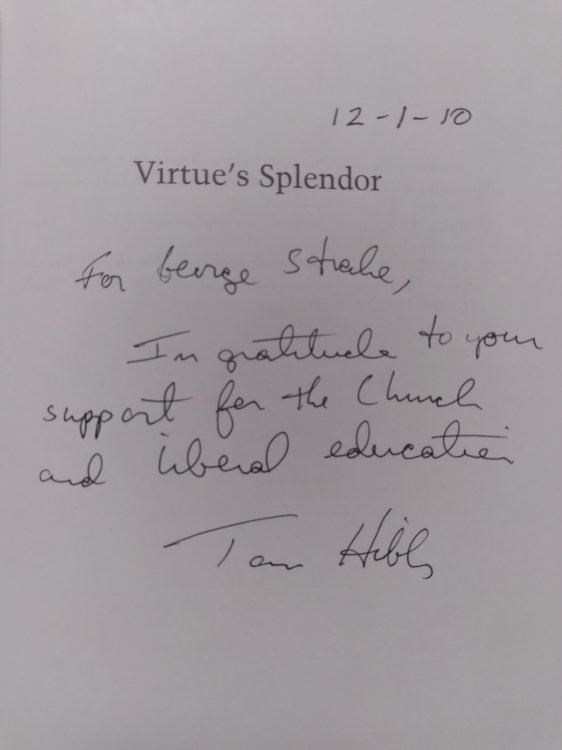 12-1-10
Virtue's Splendor
For George Strake,
In gratitude to your
support for the Church
and liberal education
Tom Hibbs